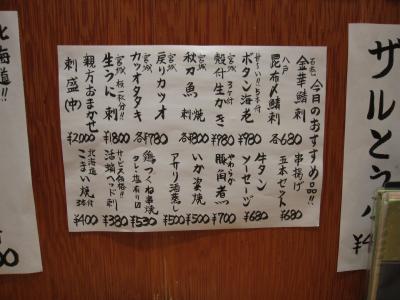 今日のおすすめ品!!
金華鯖刺
八戸
昆布〆鯖刺
各¥680
ボタン海老
¥980
宮城
殻付生かき
¥780
秋刀魚
刺
焼
¥800
宮城
戻りカツオ
宮城
カツオタタキ
各¥780
宮城
生うに刺
¥1800
親方おまかせ
刺盛(中)
¥2000
串揚げ
五本セット
¥680
牛タン
ソーセージ
¥680
やわらか
豚角煮
¥700
いか姿焼
¥500
アサリ酒蒸し
¥500
鶏つくね串焼
タレ・塩有り
¥530
サービス価格!!
活ホヤ刺
¥380
北海道
こまい焼
¥400
北海道!!
ザルとう